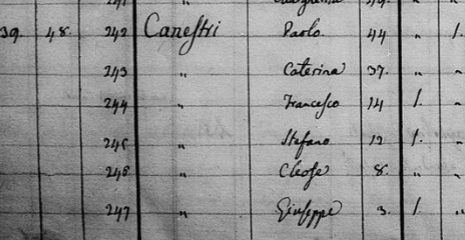 39. 48. 242 Canestri Paolo. 44 " 1.
243 " Caterina 37. " "
244 " Francesco 14 1. "
245 " Stefano 12 1. "
246 " Cleofe 8. " "
247 " Giuseppe 3. 1. "